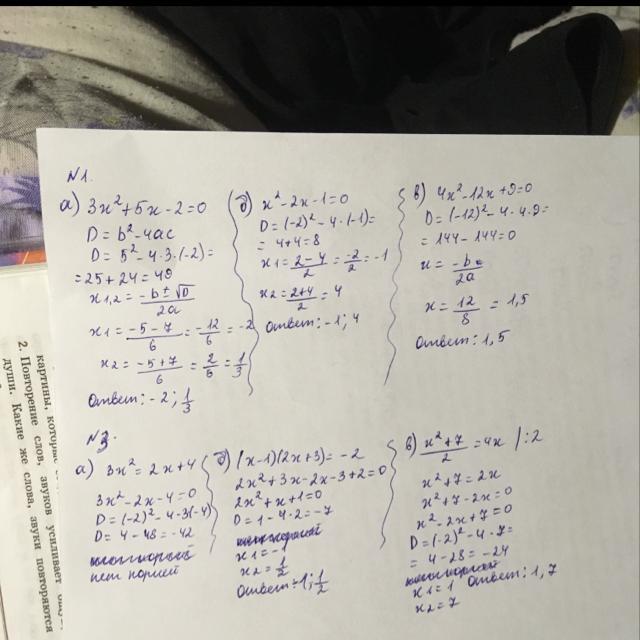 N1.
а) 3x²+5x-2=0
D=b²-4ac
D=5²-4·3·(-2)=
=25+24=49
x1,2=(-b±√D)/2a
x1=(-5-7)/6=-12/6=-2
x2=(-5+7)/6=2/6=1/3
Ответ: -2; 1/3
б) x²-2x-1=0
D=(-2)²-4·(-1)=
=4+4=8
x1=(2-4)/2=-2/2=-1
x2=(2+4)/2=4
Ответ: -1; 4
в) 4x²-12x+9=0
D=(-12)²-4·4·9=
=144-144=0
x=-b/2a
x=12/8=1,5
Ответ: 1,5
N3.
а) 3x²=2x+4
3x²-2x-4=0
D=(-2)²-4·3(-4)
D=4-48=-42
нет корней
б) (x-1)(2x+3)=-2
2x²+3x-2x-3+2=0
2x²+x+1=0
D=1-4·2=-7
x1=-1
x2=1/2
Ответ: -1; 1/2
в) (x²+7)/2=4x /:2
x²+7=2x
x²+7-2x=0
x²-2x+7=0
D=(-2)²-4·7=
=4-28=-24
x1=1 Ответ: 1,7
x2=7
2. Повторение слов, звуков усиливает
души. Какие же слова, звуки повторяются